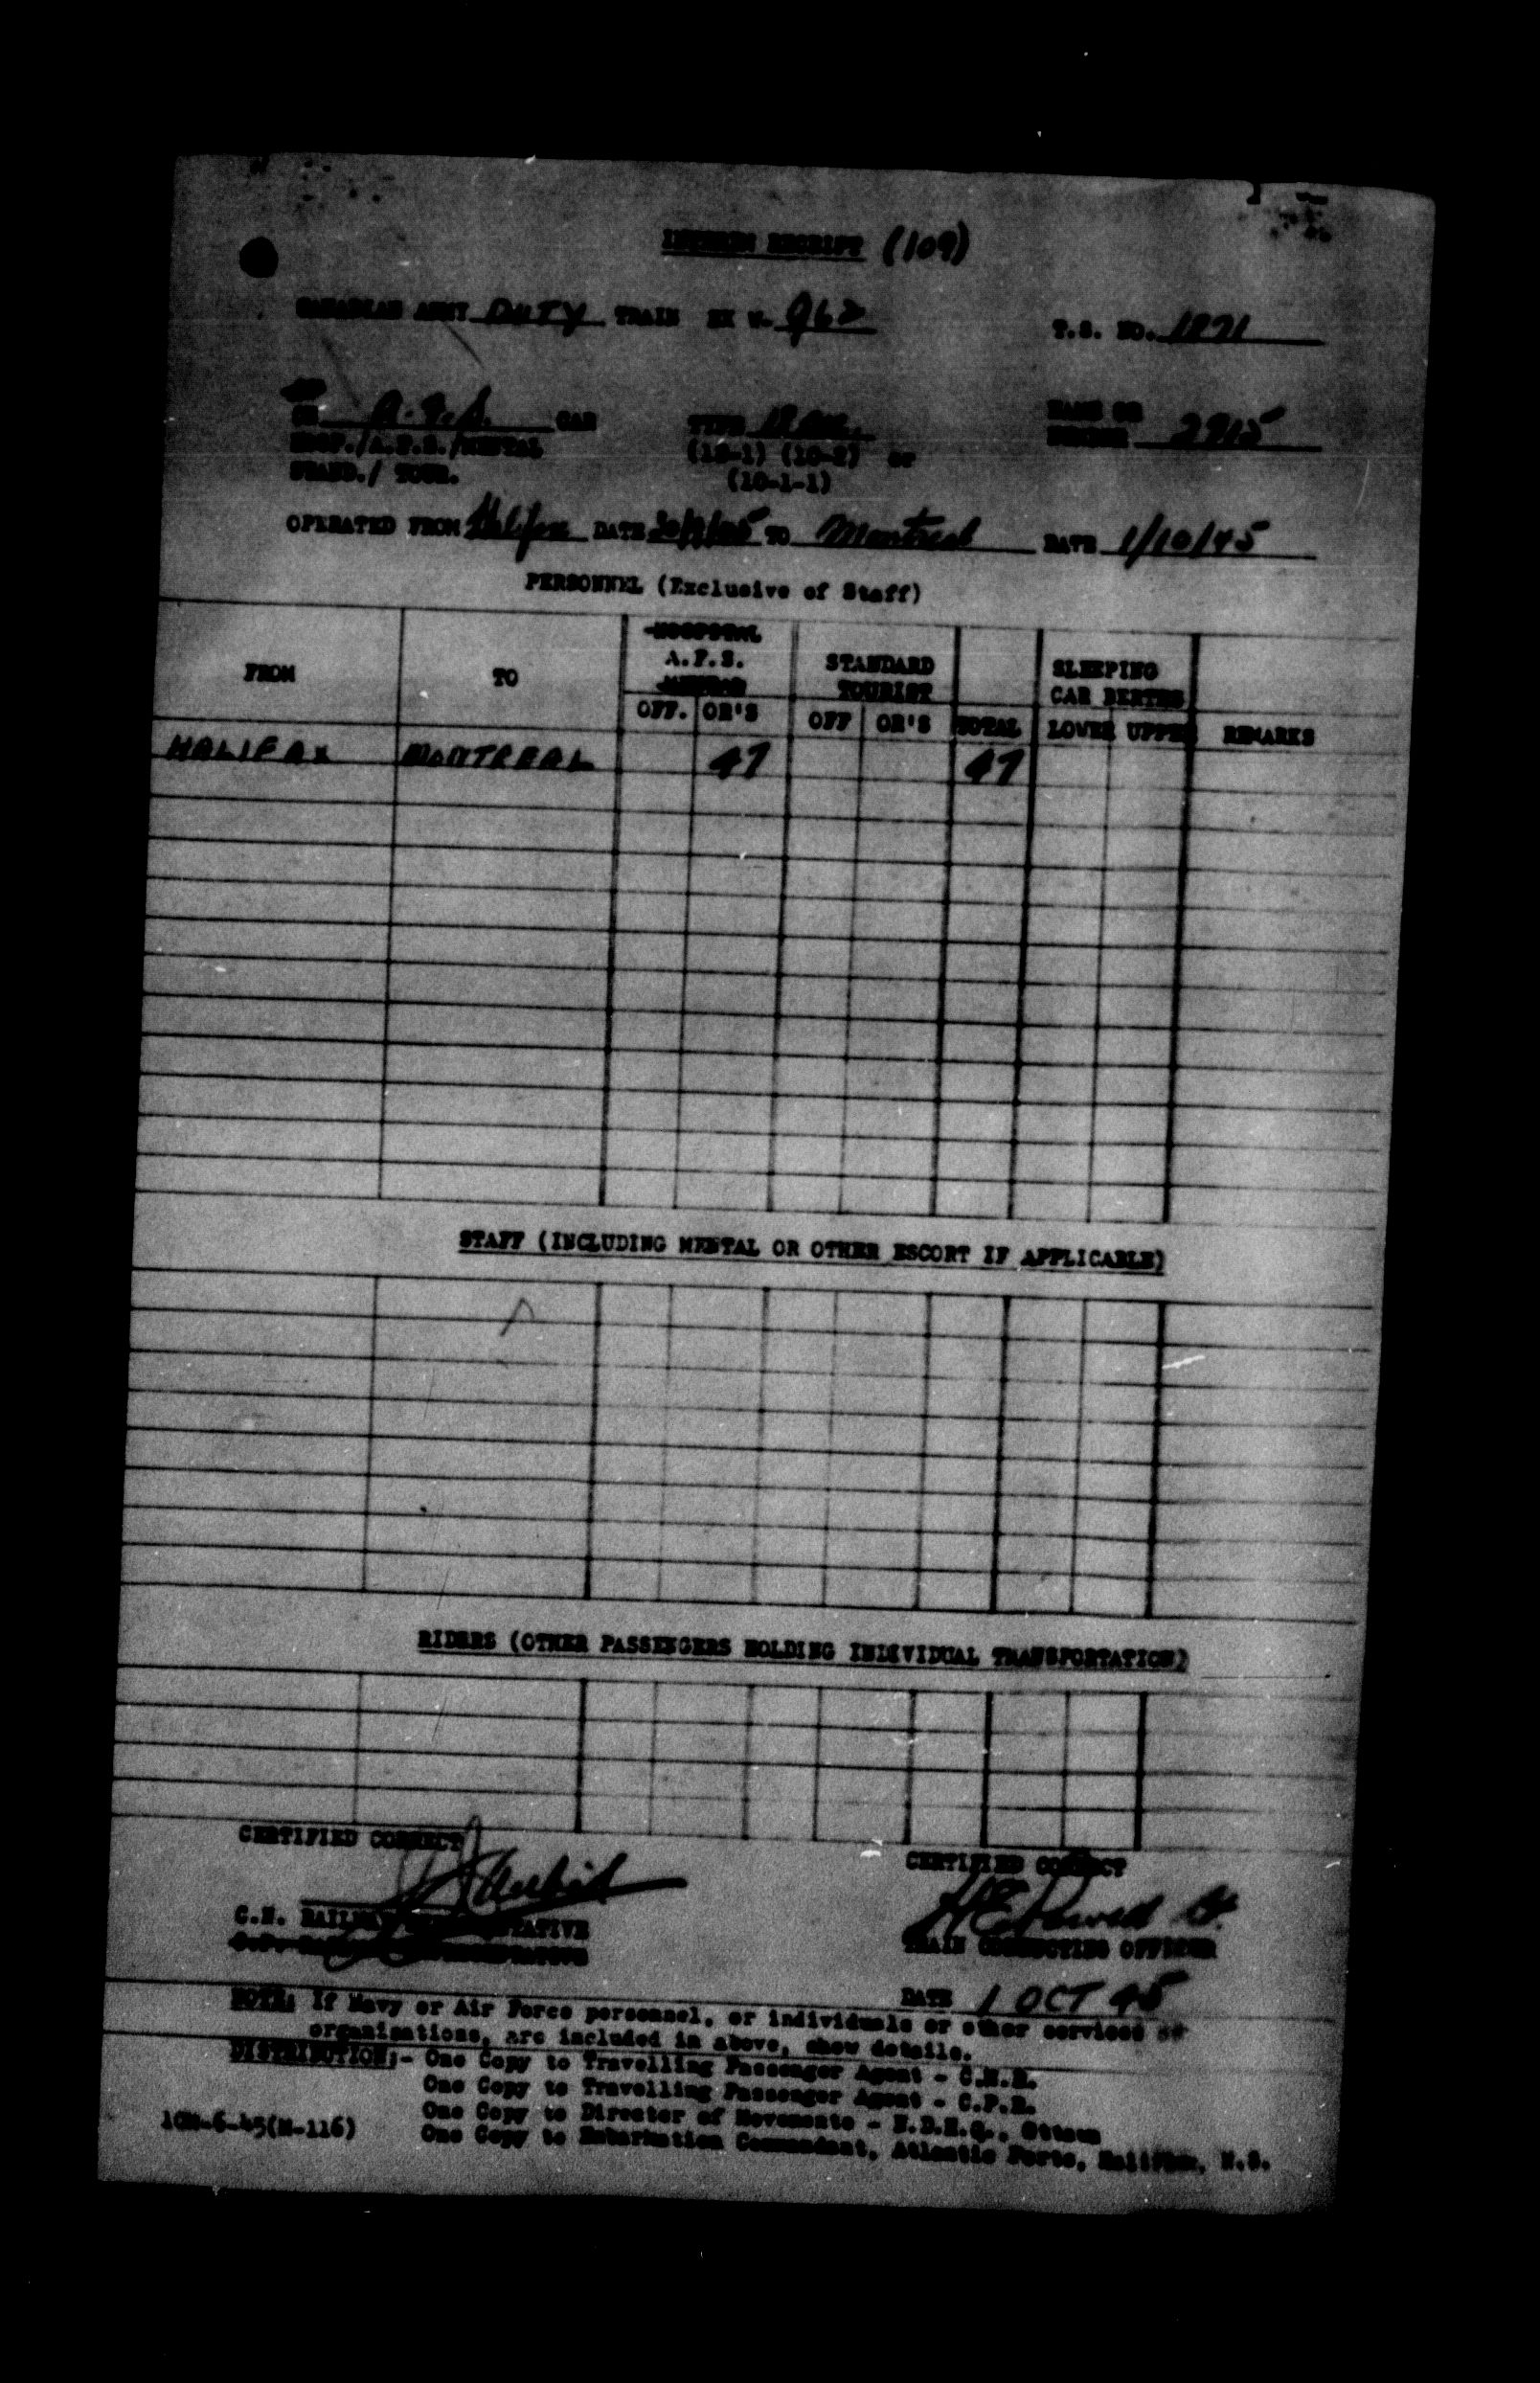 INTERIM RECEIPT (109)
CANADIAN ARMY DUTY TRAIN EX W. 962 T.S. NO. 1871
CN A.F.S. CAR TYPE NAME OR
HOSP./A.F.S./MENTAL (12-1) (10-2) or NUMBER 2915
STAND./ TOUR. (10-1-1)
OPERATED FROM Halifax DATE 30/9/45 TO Montreal DATE 1/10/45
PERSONNEL (Exclusive of Staff)
FROM TO HOSPITAL A.F.S. MENTAL STANDARD TOURIST SLEEPING CAR BERTHS
OFF. OR'S OFF OR'S TOTAL LOWER UPPER REMARKS
HALIFAX MONTREAL 47 47
STAFF (INCLUDING MENTAL OR OTHER ESCORT IF APPLICABLE)
RIDERS (OTHER PASSENGERS HOLDING INDIVIDUAL TRANSPORTATION)
CERTIFIED CORRECT CERTIFIED CORRECT
C.N. RAILWAY REPRESENTATIVE
TRAIN CONDUCTING OFFICER
DATE 1 OCT 45
NOTE: If Navy or Air Force personnel, or individuals or other services or
organizations, are included in above, show details.
DISTRIBUTION:- One Copy to Travelling Passenger Agent - C.N.R.
One Copy to Travelling Passenger Agent - C.P.R.
One Copy to Director of Movements - N.D.H.Q., Ottawa
One Copy to Embarkation Commandant, Atlantic Ports, Halifax, N.S.
10M-6-45(M-116)